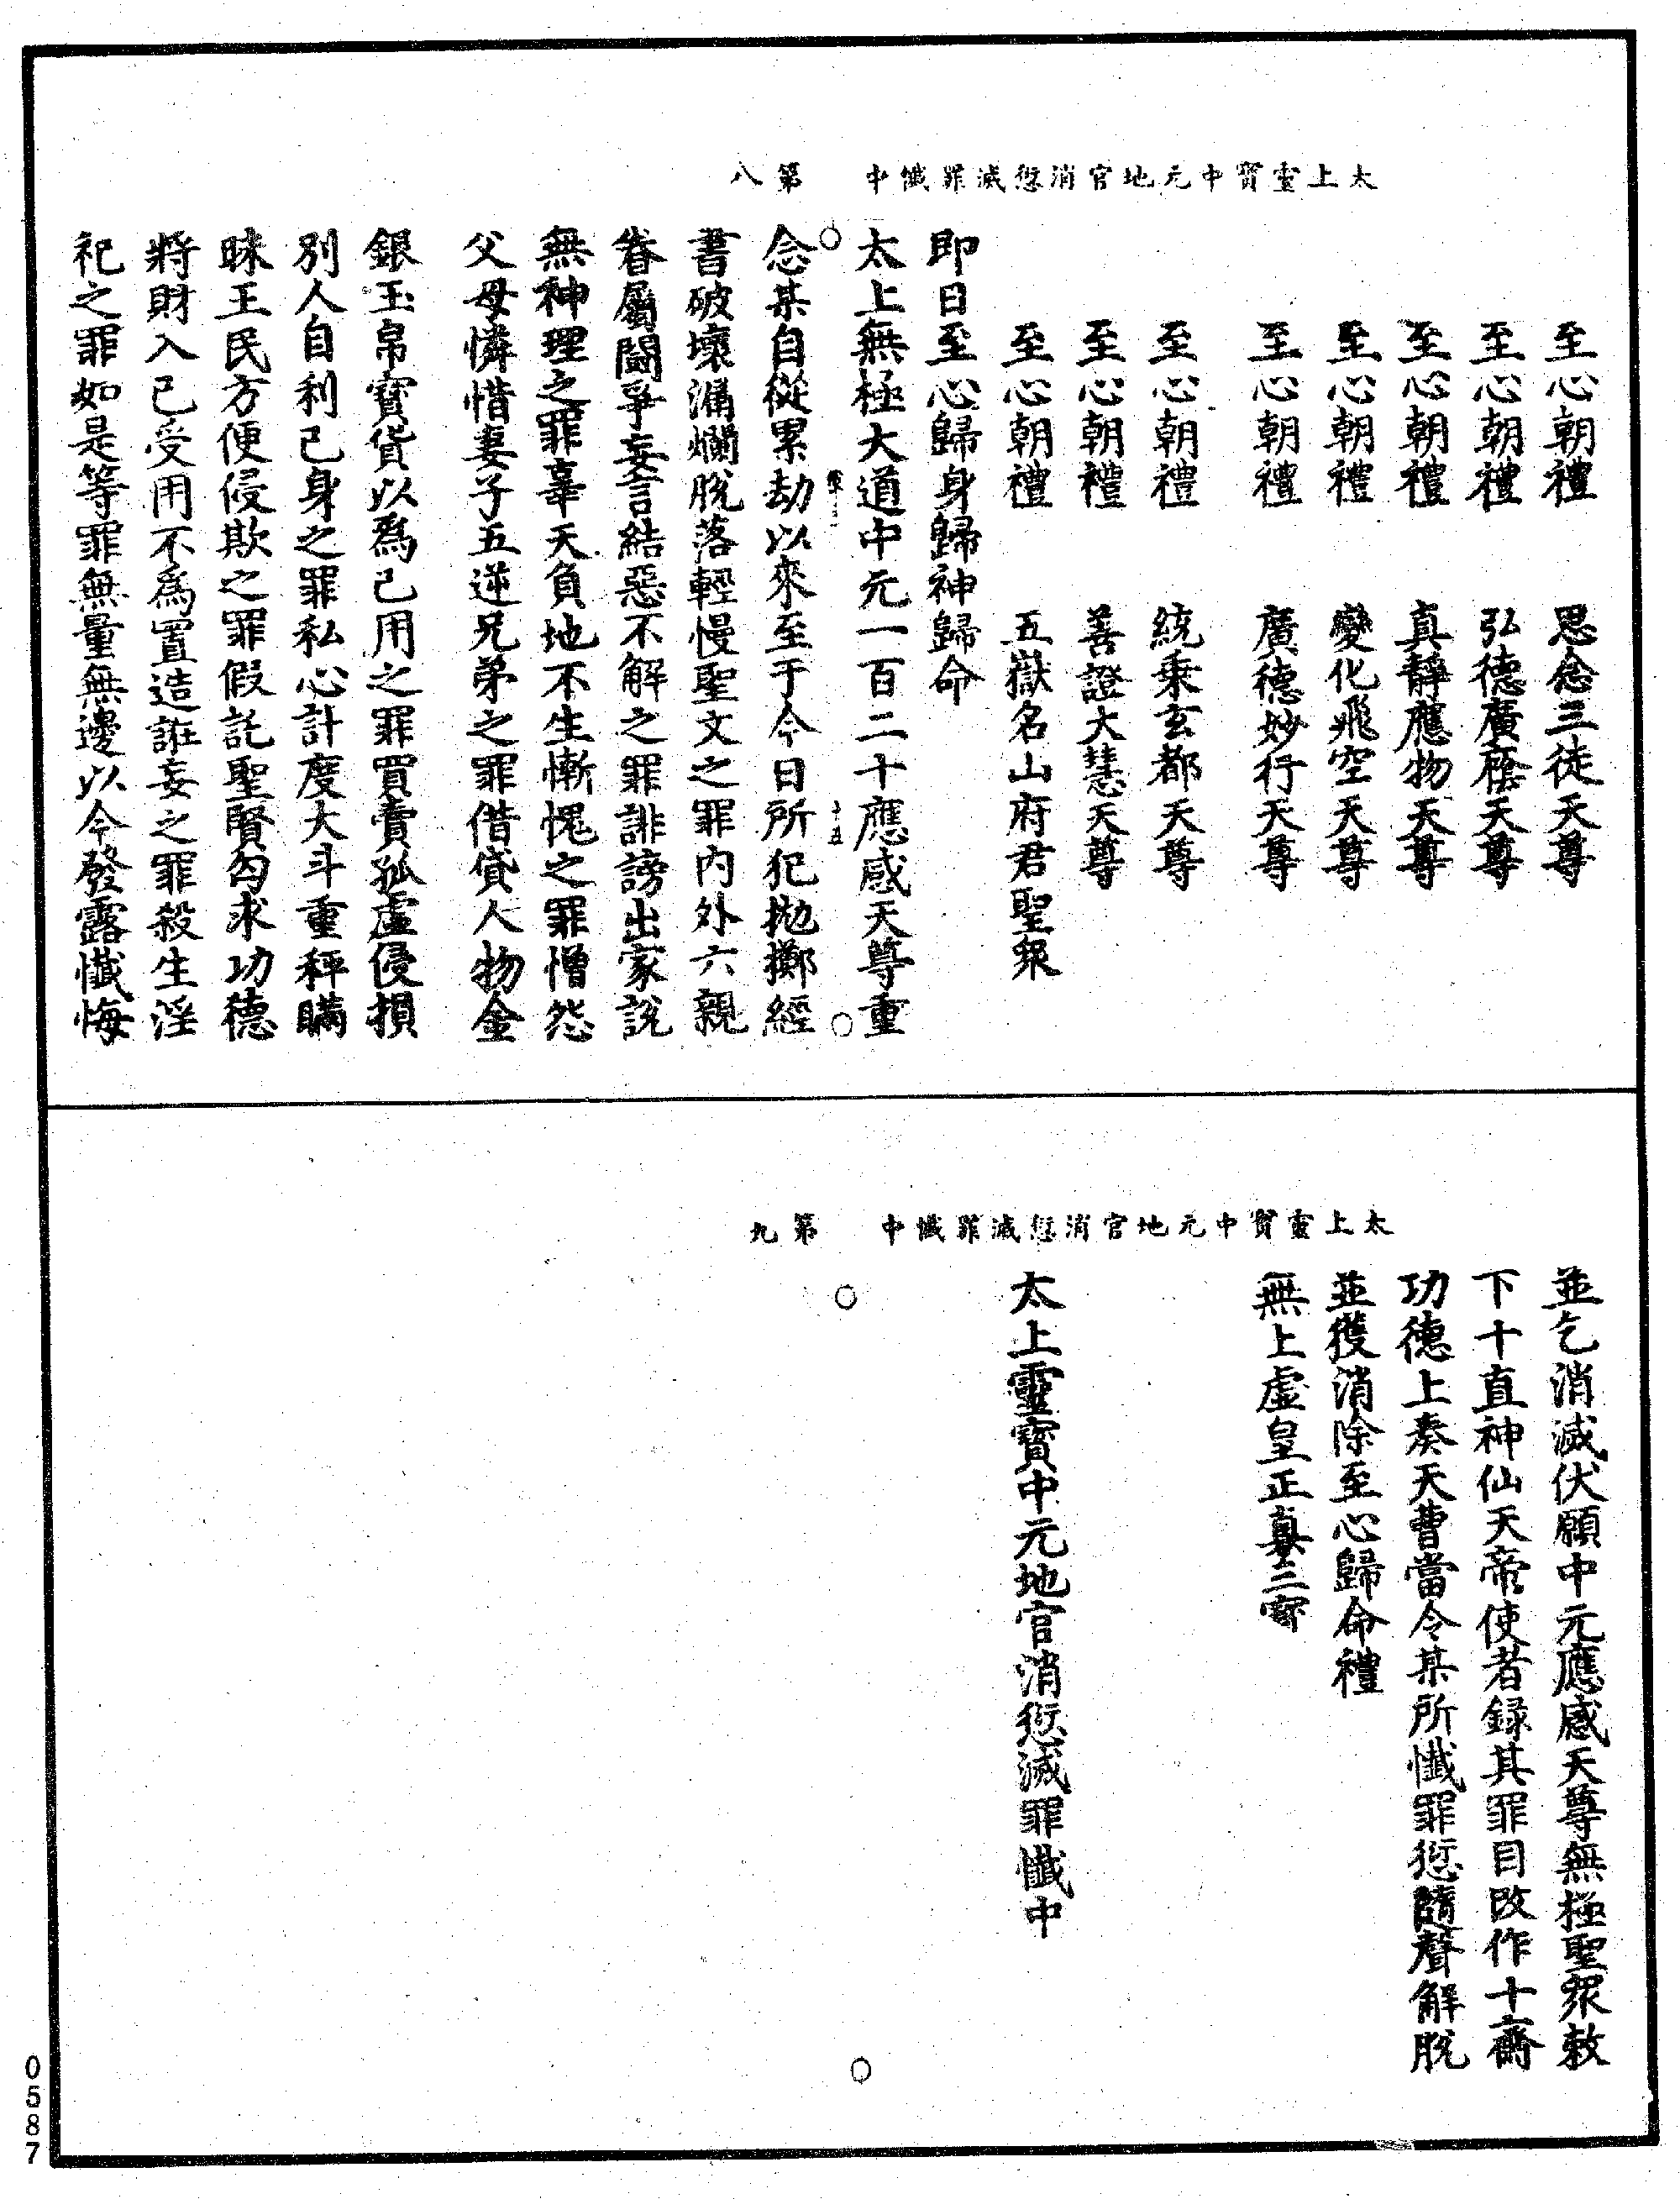 太上靈寶中元地官消愆滅罪懺中　第八
至心朝禮　思念三徒天尊
至心朝禮　弘德廣蔭天尊
至心朝禮　真靜應物天尊
至心朝禮　變化飛空天尊
至心朝禮　廣德妙行天尊
至心朝禮　統乘玄都天尊
至心朝禮　善證大慧天尊
至心朝禮　五嶽名山府君聖眾
即日至心歸身歸神歸命
太上無極大道中元一百二十應感天尊重
念某自從累劫以來至于今日所犯拋擲經
書破壞漏爛脫落輕慢聖文之罪內外六親
眷屬鬬爭妄言結惡不解之罪誹謗出家說
無神理之罪辜天負地不生慚愧之罪憎怨
父母憐惜妻子五逆兄弟之罪借貸人物金
銀玉帛寶貨以爲己用之罪買賣孤虛侵損
別人自利己身之罪私心計度大斗重秤瞞
昧王民方便侵欺之罪假託聖賢勾求功德
將財入己受用不爲置造誑妄之罪殺生淫
祀之罪如是等罪無量無邊以今發露懺悔
太上靈寶中元地官消愆滅罪懺中　第九
並乞消滅伏願中元應感天尊無極聖眾敕
下十直神仙天帝使者錄其罪目改作十齋
功德上奏天曹當令某所懺罪愆隨聲解脫
並獲消除至心歸命禮
無上虛皇正真三寶
太上靈寶中元地官消愆滅罪懺中
0587